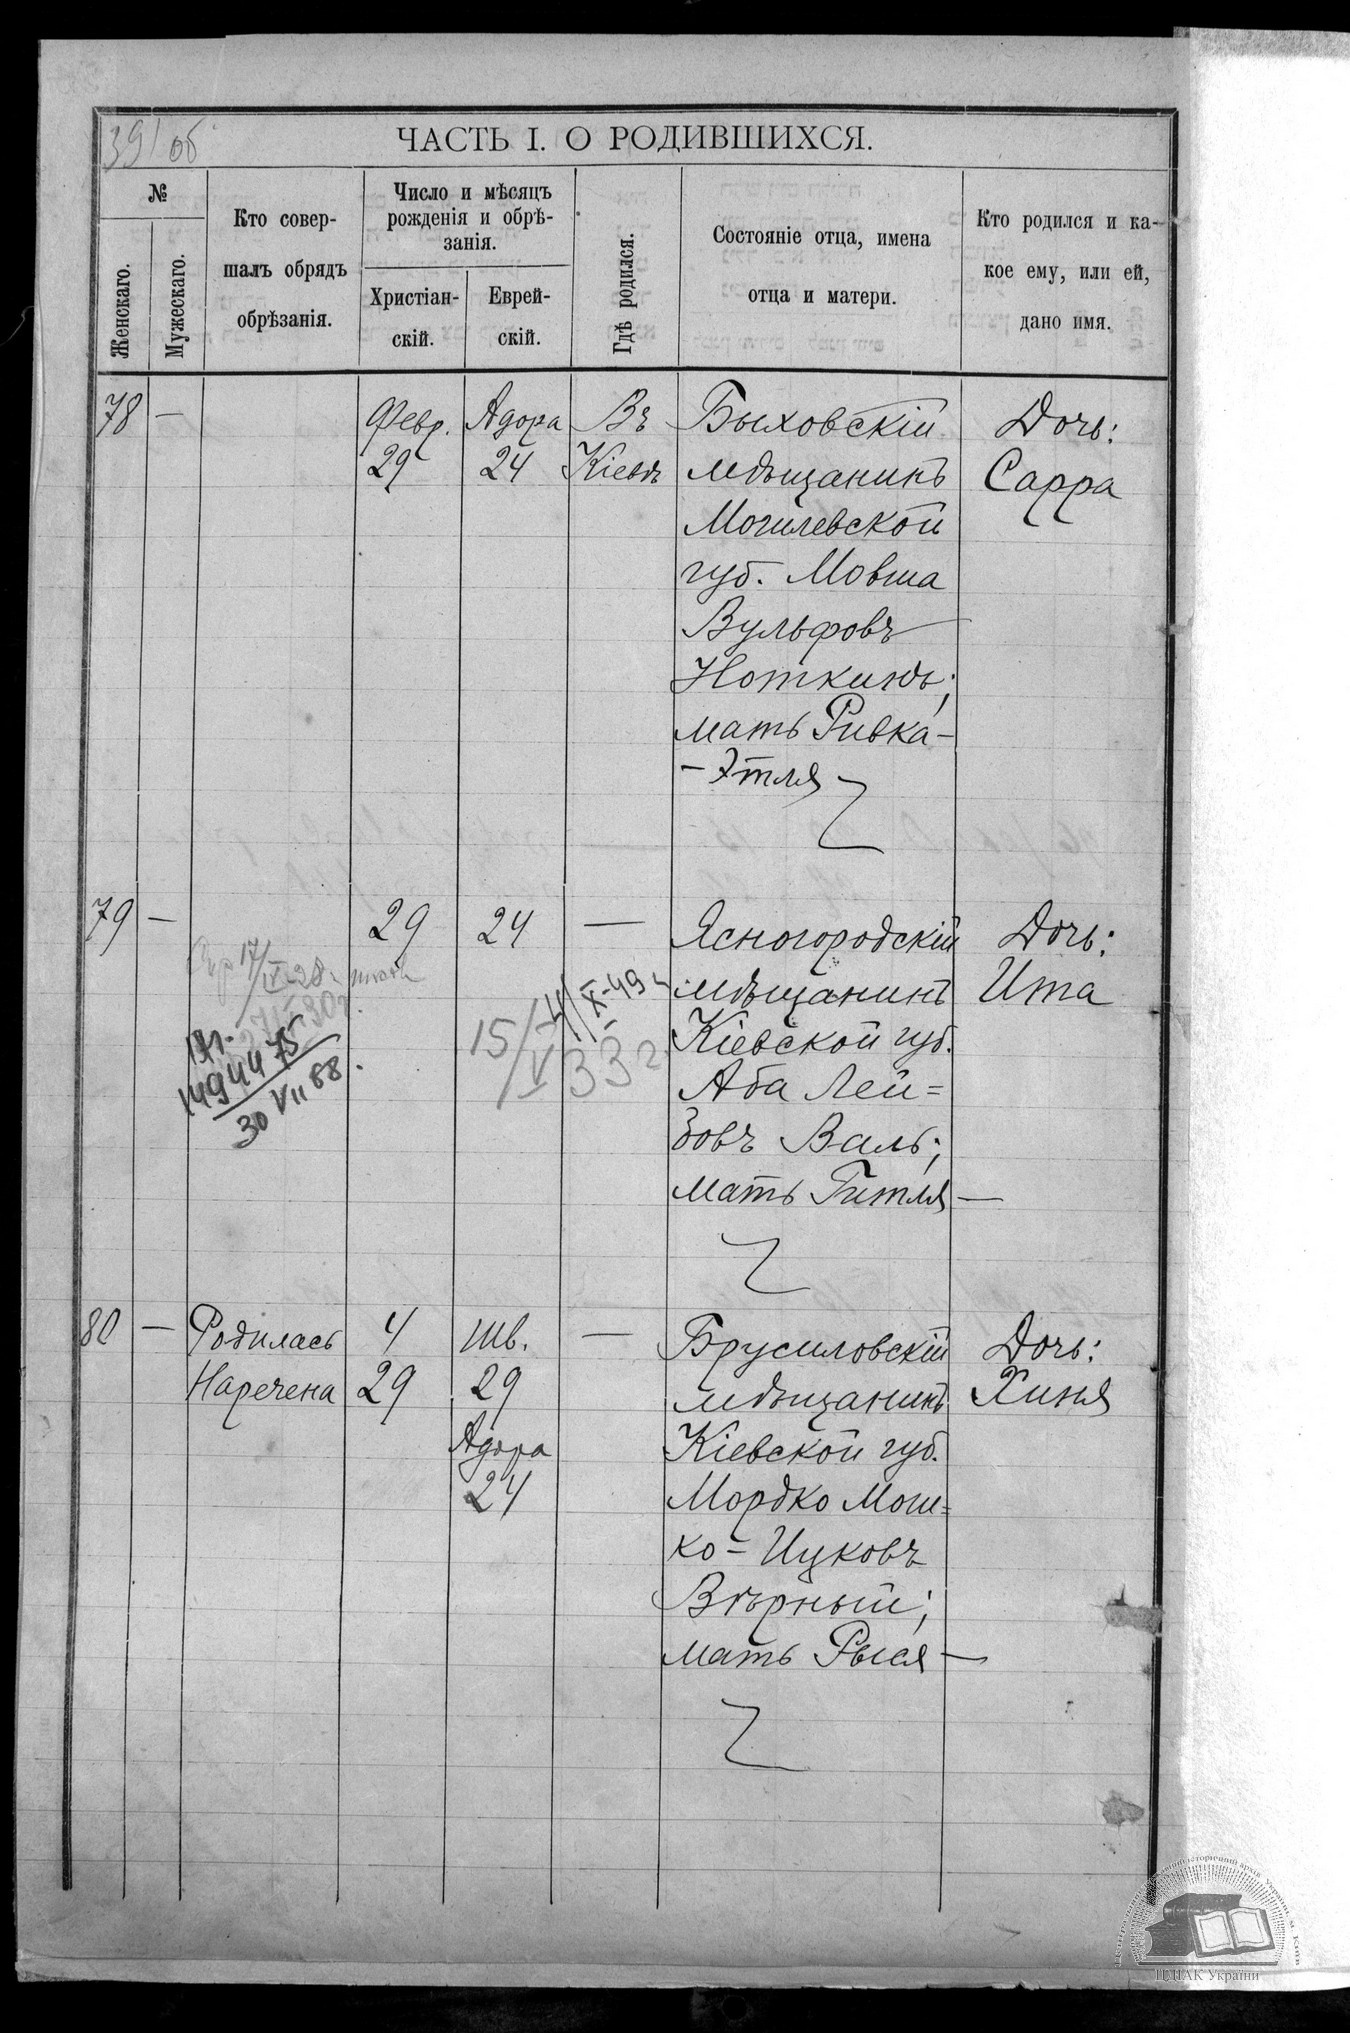 39 об
ЧАСТЬ I. О РОДИВШИХСЯ.
№
Женскаго.
Мужескаго.
Кто совер-
шалъ обрядъ
обрѣзанія.
Число и мѣсяцъ
рожденія и обрѣ-
занія.
Христіан-
скій.
Еврей-
скій.
Гдѣ родился.
Состояніе отца, имена
отца и матери.
Кто родился и ка-
кое ему, или ей,
дано имя.
78 —
Февр.
29
Адора
24
Въ
Кіевѣ
Быховскій
мѣщанинъ
Могилевской
губ. Мовша
Вульфовъ
Ноткинъ;
мать Ривка-
- Этля
Дочь:
Сарра
79 —
29
24
—
Ясногородскій
мѣщанинъ
Кіевской губ.
Аба Лей=
зовъ Валь;
мать Гитля —
Дочь:
Ита
17/IX-28
4/X-49 г
15/V 33 г.
149 44 75
30 VII 68.
80 —
Родилась
Наречена
4
29
Шв.
29
Адора
24
—
Брусиловскій
мѣщанинъ
Кіевской губ.
Мордко Мош=
ко - Ицковъ
Вѣрный;
мать Рыся —
Дочь:
Хиня
ЦДІАК України